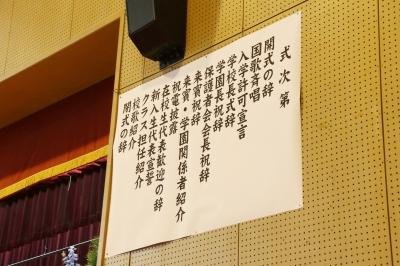 式次第
開式の辞
国歌斉唱
入学許可宣言
学校長式辞
学園長祝辞
保護者会会長祝辞
来賓祝辞
来賓・学園関係者紹介
祝電披露
在校生代表歓迎の辞
新入生代表宣誓
クラス担任紹介
校歌紹介
閉式の辞